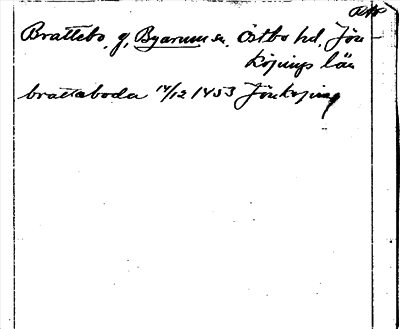 Brattebo, g, Byarum sn. Östbo hd, Jön-
köpings län
brattæboda 14/12 1453 Jönköping